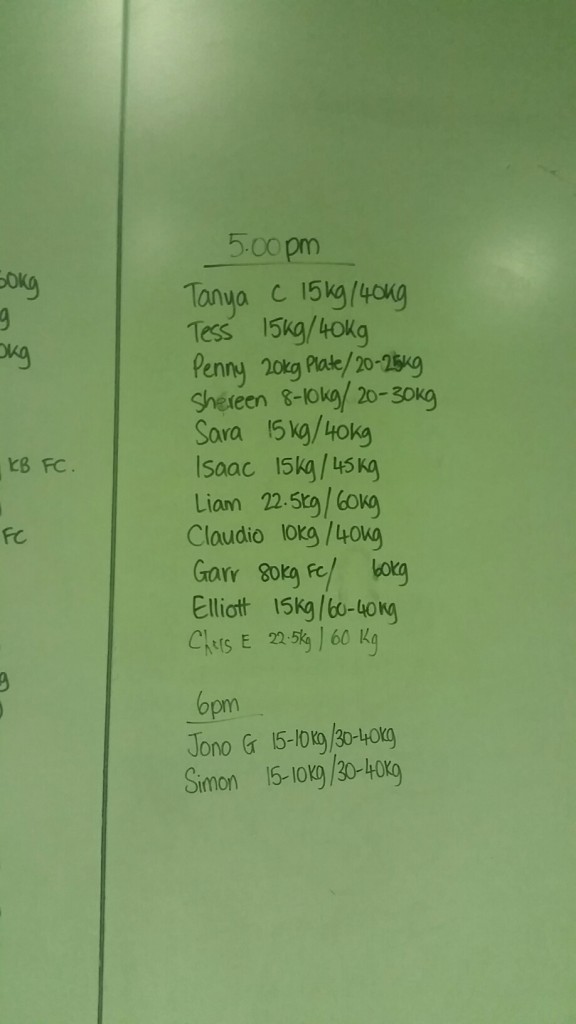 50kg
g
0kg
KB FC.
FC
g
5.00pm
Tanya C 15kg/40kg
Tess 15kg/40kg
Penny 20kg Plate/20-25kg
Shereen 8-10kg/20-30kg
Sara 15kg/40kg
Isaac 15kg/45kg
Liam 22.5kg/60kg
Claudio 10kg/40kg
Garr 80kg FC/ 60kg
Elliott 15kg/60-40kg
Chris E 22.5kg/60 Kg
6pm
Jono G 15-10kg/30-40kg
Simon 15-10kg/30-40kg